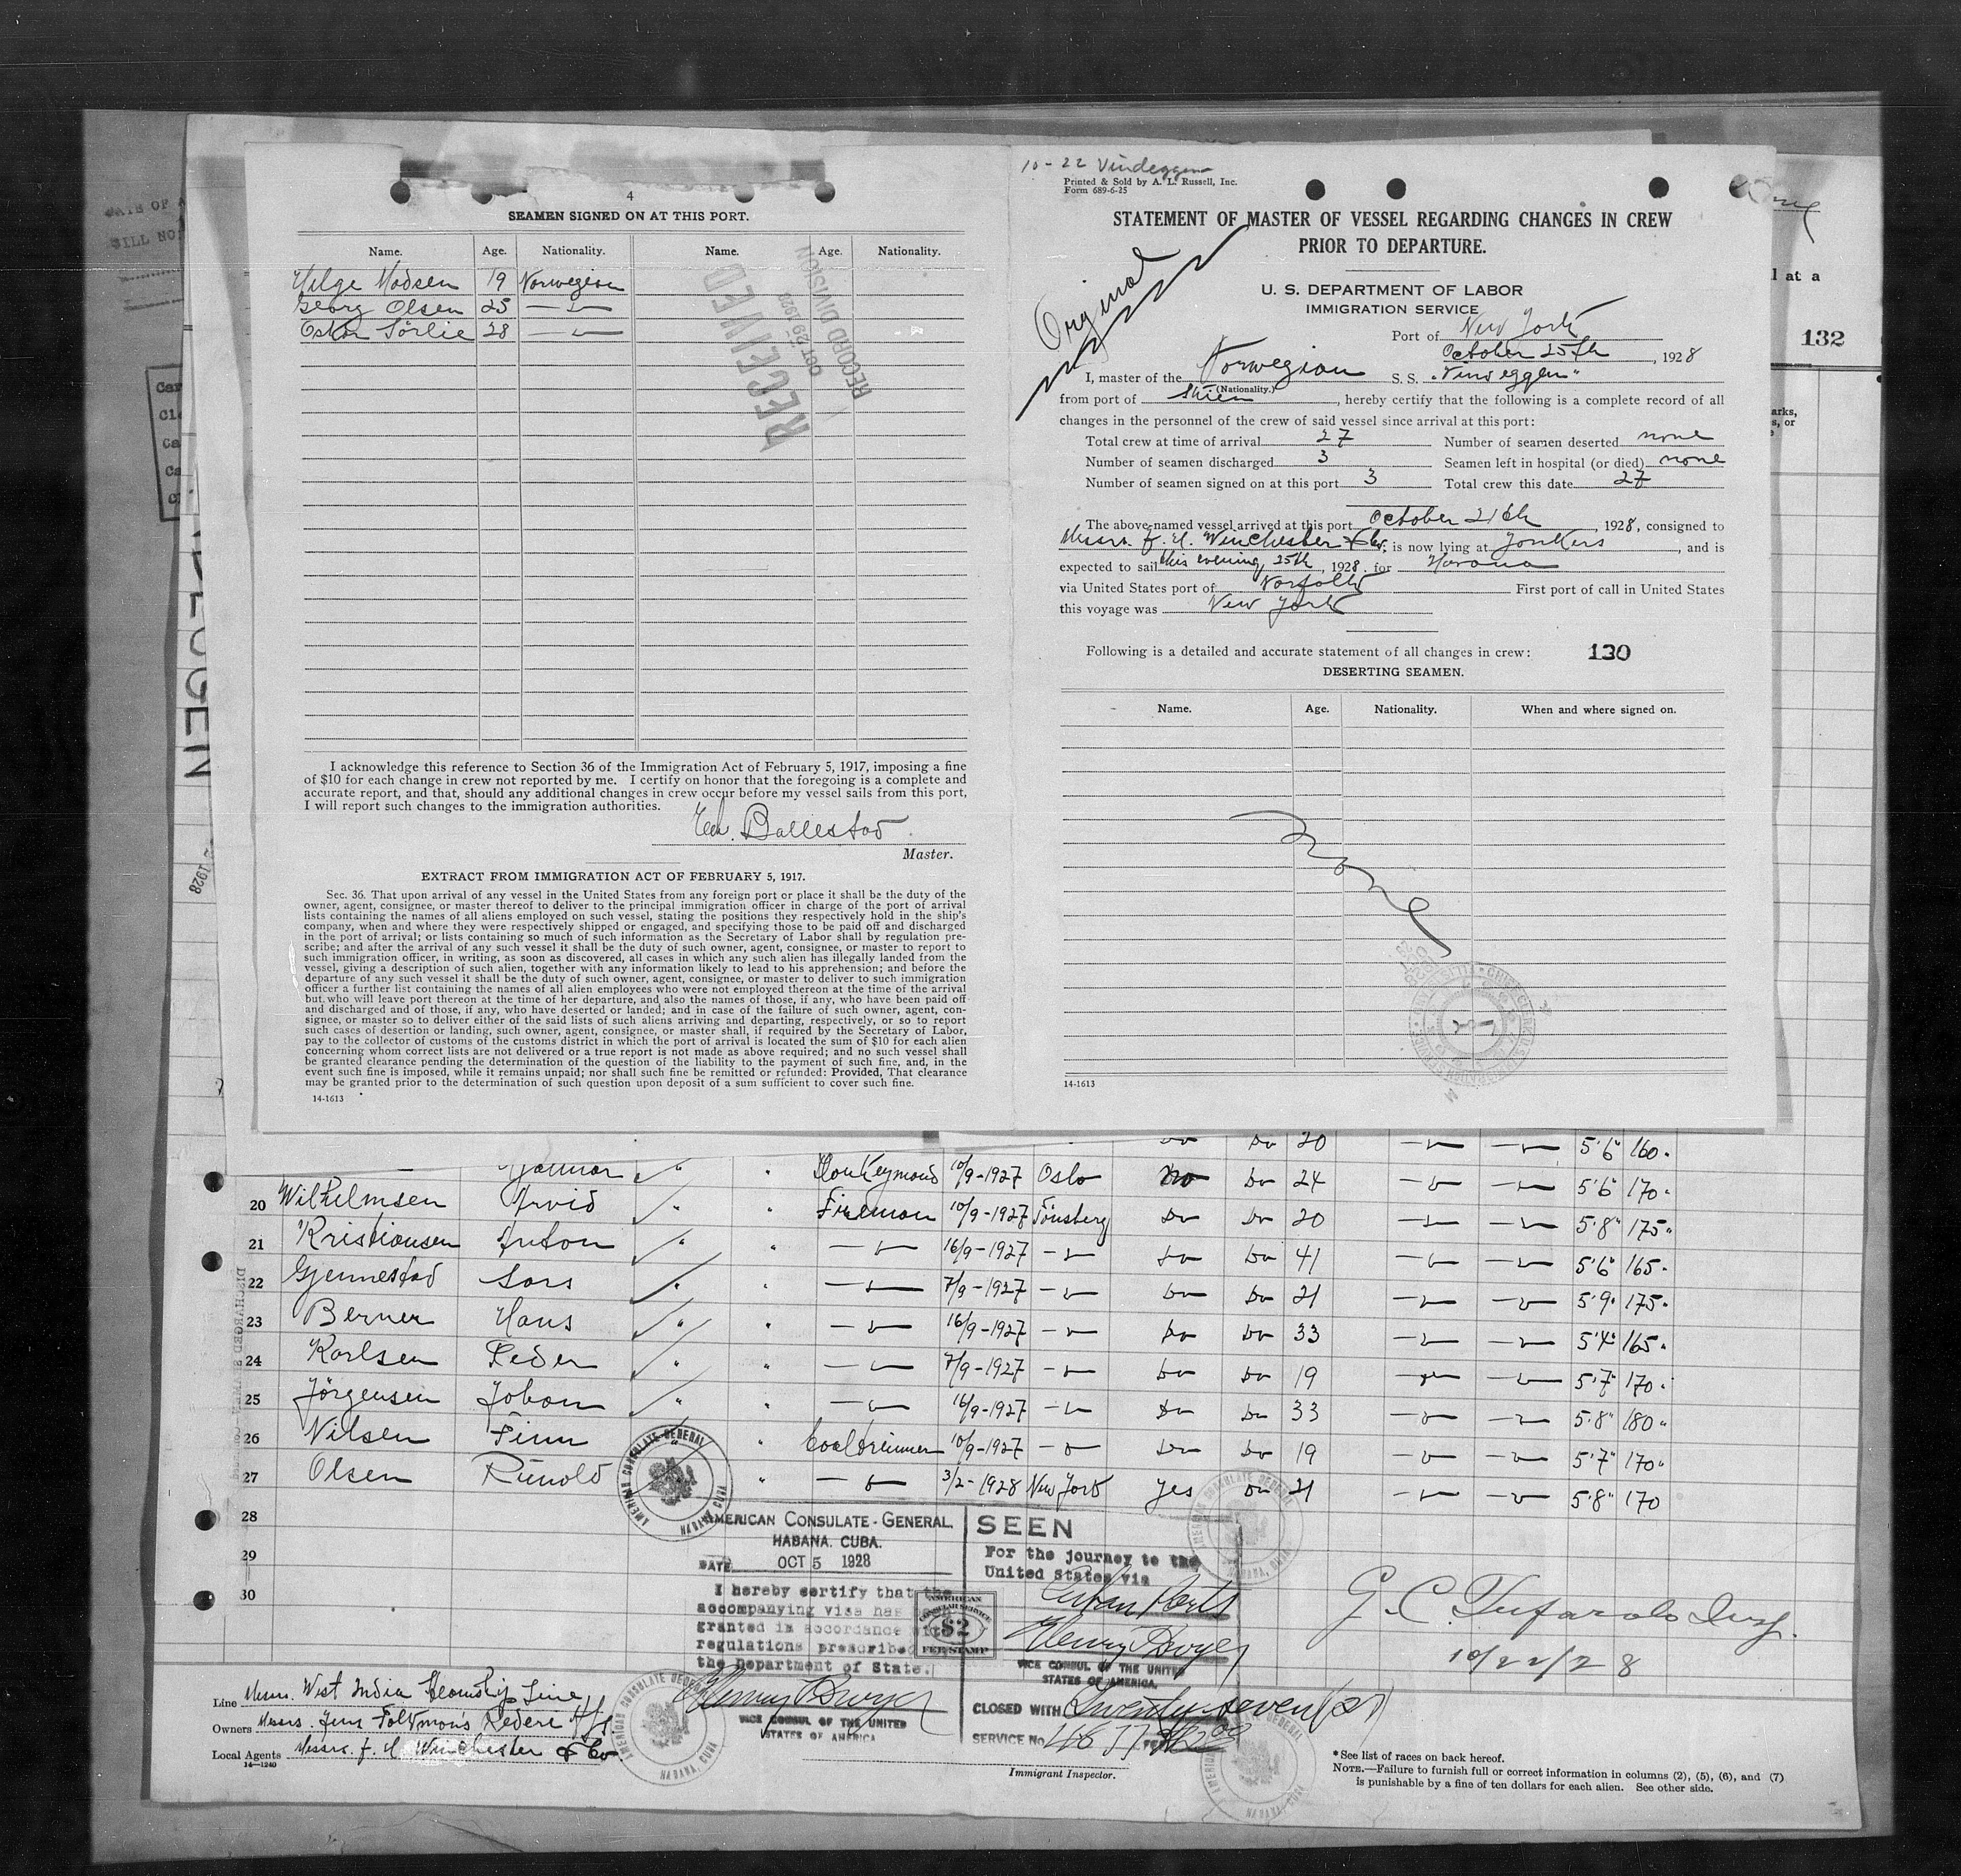 4
SEAMEN SIGNED ON AT THIS PORT.
Name. Age. Nationality. Name. Age. Nationality.
Helge Madsen 19 Norwegian
Georg Olsen 25 — " —
Oskar Sörlie 28 — " —
RECEIVED
OCT 29 1928
RECORD DIVISION
I acknowledge this reference to Section 36 of the Immigration Act of February 5, 1917, imposing a fine
of $10 for each change in crew not reported by me. I certify on honor that the foregoing is a complete and
accurate report, and that, should any additional changes in crew occur before my vessel sails from this port,
I will report such changes to the immigration authorities.
Ballestad
Master.
EXTRACT FROM IMMIGRATION ACT OF FEBRUARY 5, 1917.
Sec. 36. That upon arrival of any vessel in the United States from any foreign port or place it shall be the duty of the
owner, agent, consignee, or master thereof to deliver to the principal immigration officer in charge of the port of arrival
lists containing the names of all aliens employed on such vessel, stating the positions they respectively hold in the ship's
company, when and where they were respectively shipped or engaged, and specifying those to be paid off and discharged
in the port of arrival; or lists containing so much of such information as the Secretary of Labor shall by regulation pre-
scribe; and after the arrival of any such vessel it shall be the duty of such owner, agent, consignee, or master to report to
such immigration officer, in writing, as soon as discovered, all cases in which any such alien has illegally landed from the
vessel, giving a description of such alien, together with any information likely to lead to his apprehension; and before the
departure of any such vessel it shall be the duty of such owner, agent, consignee, or master to deliver to such immigration
officer a further list containing the names of all alien employees who were not employed thereon at the time of the arrival
but who will leave port thereon at the time of her departure, and also the names of those, if any, who have been paid off
and discharged and of those, if any, who have deserted or landed; and in case of the failure of such owner, agent, con-
signee, or master so to deliver either of the said lists of such aliens arriving and departing, respectively, or so to report
such cases of desertion or landing, such owner, agent, consignee, or master shall, if required by the Secretary of Labor,
pay to the collector of customs of the customs district in which the port of arrival is located the sum of $10 for each alien
concerning whom correct lists are not delivered or a true report is not made as above required; and no such vessel shall
be granted clearance pending the determination of the question of the liability to the payment of such fine, and, in the
event such fine is imposed, while it remains unpaid; nor shall such fine be remitted or refunded: Provided, That clearance
may be granted prior to the determination of such question upon deposit of a sum sufficient to cover such fine.
14-1613
10-22 Vindeggen
Printed & Sold by A. L. Russell, Inc.
Form 689-6-25
STATEMENT OF MASTER OF VESSEL REGARDING CHANGES IN CREW
PRIOR TO DEPARTURE.
Original
U. S. DEPARTMENT OF LABOR
IMMIGRATION SERVICE
Port of New York
October 25th, 1928
I, master of the Norwegian S. S. "Vindeggen"
(Nationality.)
from port of Skien, hereby certify that the following is a complete record of all
changes in the personnel of the crew of said vessel since arrival at this port:
Total crew at time of arrival 27 Number of seamen deserted none
Number of seamen discharged 3 Seamen left in hospital (or died) none
Number of seamen signed on at this port 3 Total crew this date 27
The above-named vessel arrived at this port October 21th, 1928, consigned to
Messrs. J. H. Winchester & Co., is now lying at Yonkers, and is
expected to sail this evening 25th, 1928, for Havana
via United States port of Norfolk First port of call in United States
this voyage was New York
Following is a detailed and accurate statement of all changes in crew: 130
DESERTING SEAMEN.
Name. Age. Nationality. When and where signed on.
None
14-1613
l at a
132
Do Do 20 — " — — " — 5'6" 160.
Donkeyman 10/9-1927 Oslo No Do 24 — " — — " — 5'6" 170.
20 Wilhelmsen Arvid " " Fireman 10/9-1927 Tönsberg Do Do 20 — " — — " — 5'8" 175"
21 Kristiansen Anton " " — " — 16/9-1927 — " — Do Do 41 — " — — " — 5'6" 165.
22 Gjennestad Lars " " — " — 7/9-1927 — " — Do Do 21 — " — — " — 5'9" 175.
23 Berner Hans " " — " — 16/9-1927 — " — Do Do 33 — " — — " — 5'4" 165.
24 Karlsen Peder " " — " — 7/9-1927 — " — Do Do 19 — " — — " — 5'7" 170.
25 Jörgensen Johan " " — " — 16/9-1927 — " — Do Do 33 — " — — " — 5'8" 180"
26 Nilsen Finn " " Coaltrimmer 10/9-1927 — " — Do Do 19 — " — — " — 5'7" 170"
27 Olsen Rinold " — " — 3/2-1928 New York Yes Do 21 — " — — " — 5'8" 170
28
29
30
AMERICAN CONSULATE GENERAL
HABANA, CUBA
AMERICAN CONSULATE-GENERAL
HABANA. CUBA.
DATE OCT 5 1928
I hereby certify that the
accompanying visa has
granted in accordance with
regulations prescribed
the Department of State.
Henry T. Dwyer
VICE CONSUL OF THE UNITED
STATES OF AMERICA
AMERICAN
CONSULAR SERVICE
$2
FEE STAMP
SEEN
For the journey to the
United States via
Cuban Ports
Henry T. Dwyer
VICE CONSUL OF THE UNITED
STATES OF AMERICA.
CLOSED WITH Twenty seven (27)
SERVICE No.
Immigrant Inspector.
G. C. Tufarolo Insp.
10/22/28
Line Messrs. West India Steamship Line
Owners Messrs. Jens Folkman's Rederi A/S
Local Agents Messrs. J. H. Winchester & Co.
14-1240
*See list of races on back hereof.
NOTE.—Failure to furnish full or correct information in columns (2), (5), (6), and (7)
is punishable by a fine of ten dollars for each alien. See other side.